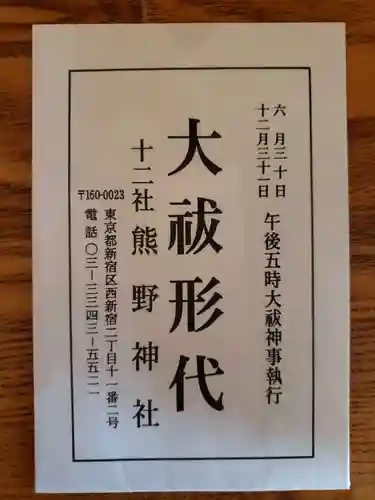 六月三十日
十二月三十一日
午後五時大祓神事執行
大祓形代
十二社熊野神社
〒160-0023
東京都新宿区西新宿二丁目十一番二号
電話〇三−三三四三−五五二一